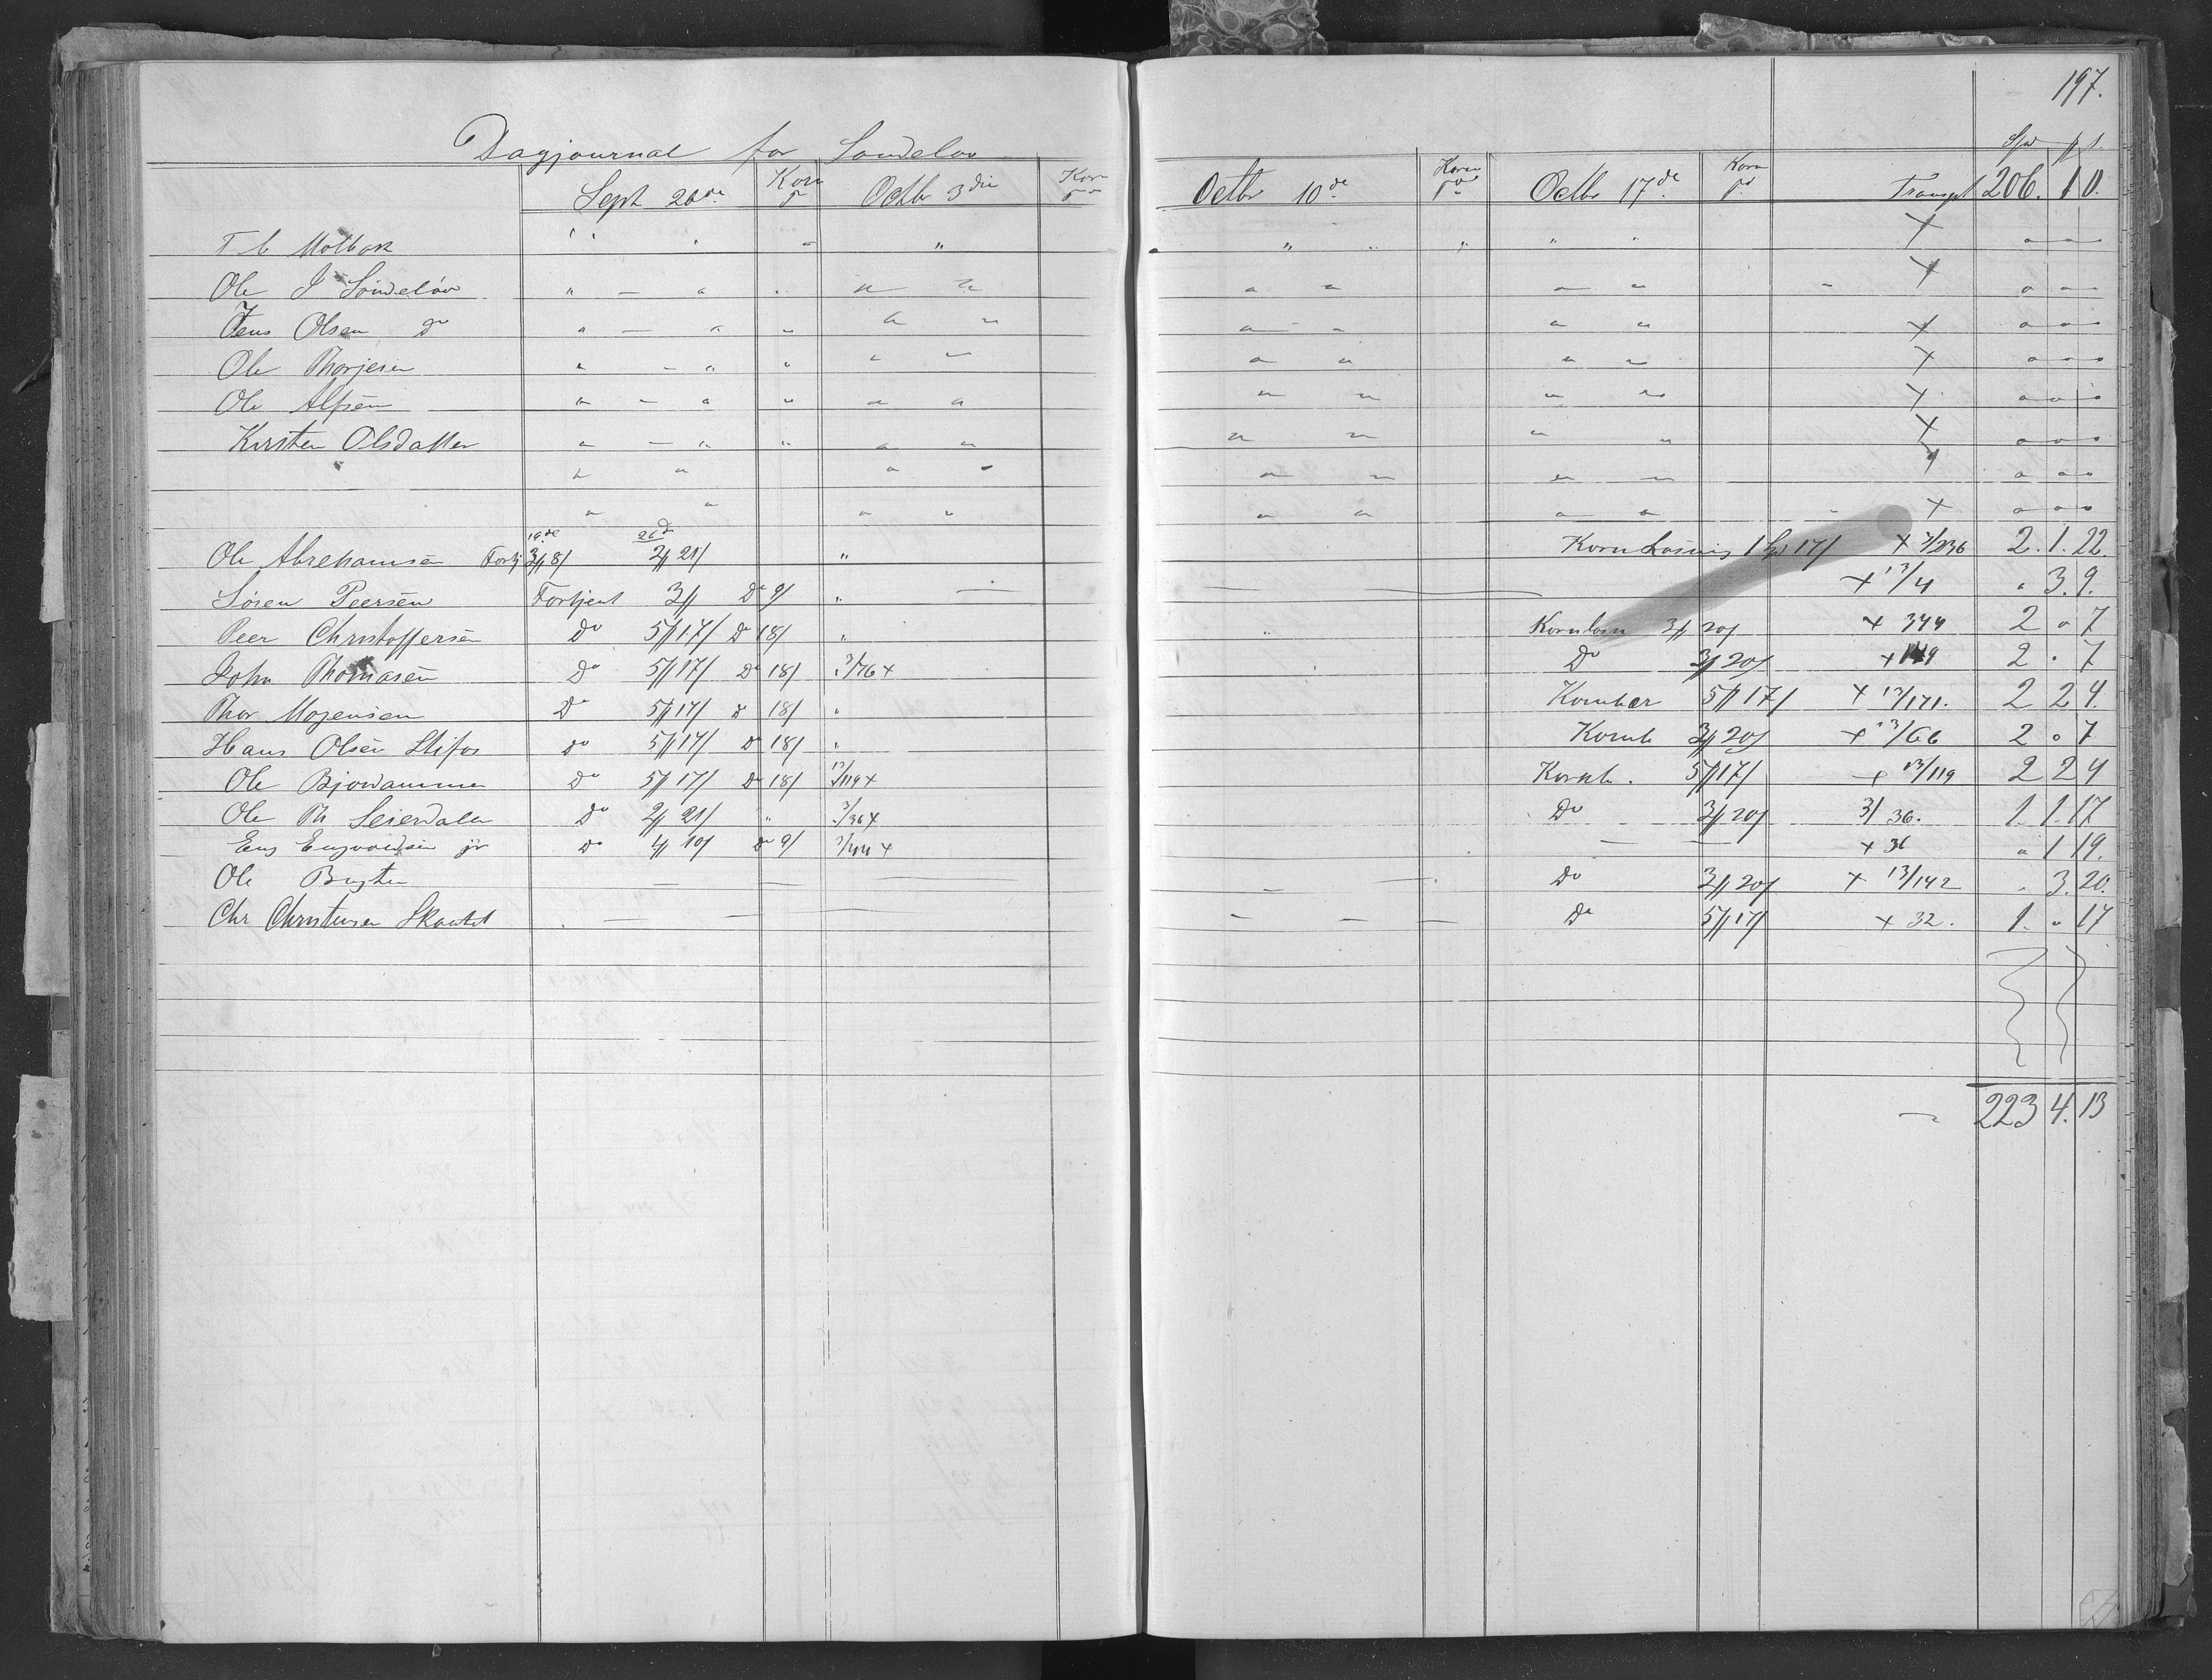 197.
Dagjournal for Søndeløv
Spd ₰ s.
Sept 26de Korn Octbr 3die Korn Octbr 10de Korn Octbr 17de Korn Transpt 206. 1 0.
T. C Molbak " " " " " " " " " × " " "
Ole J Søndeløv " — " " " " " " " " × " " "
Jens Olsen Do " — " " " " " — " " " × " " "
Ole Thorjesen " — " " " " " " " " × " " "
Ole Alfsen — " — " " " " " " " " × " " "
Kirsten Olsdatter " — " " " " " " " " × " " "
" " " " " " " " × " " "
" " " " " " " " × " " "
19de 26de
Ole Abrehamsen Fortj 3/8/ 2/21/ " Korn Losning 1 Sp 17/ × 3/236 2. 1. 22.
Søren Peersen Fortjent 3/ Do 9/ " — × 13/4 " 3. 9.
Peer Christoffersen Do 5/17/ D 18/ " Kornlosn 3/20/ × 344 2 " 7
John Thomasen Do 5/17/ Do 18/ 3/76 × Do 3/20/ × 149 2 " 7
Thor Mogensen Do 5/17/ D 18/ " Kornbær 5/17/ × 13/171. 2 2 4.
Hans Olsen Stifos Do 5/17/ Do 18/ " Kornb 3/20/ × 13/66 2 " 7
Ole Bjorvammen Do 5/17/ Do 18/ 13/119 × Kornb. 5/17/ × 13/119 2 2 4
Ole Th Seierdalen Do 2/21/ " 3/36 × Do 3/20/ 3/36. 1. 1. 17
Eng Engvoldsen jr Do 4/10/ Do 9/ — × 36 " 1 19.
Ole Bugten — — — — — Do 3/20/ × 13/142 " 3. 20.
Chr Christensen Skaatet — — — — — — Do 5/17/ × 32. 1. " 17
— 223 4. 13